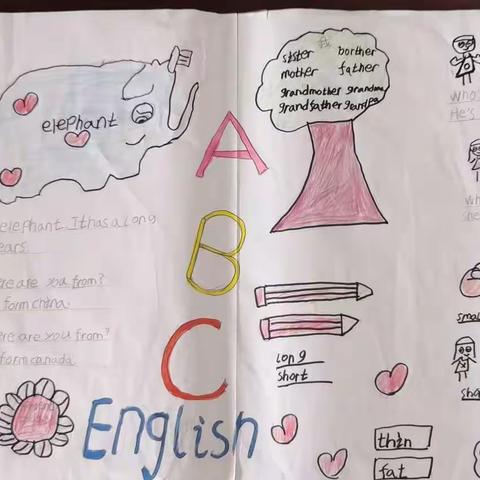 elephant
elephant. It has a long
ears.
are you from?
form china.
are you from?
form canada
A
B
C
English
sister borther
mother father
grandmother grandma
grandfather grandpa
long
short
thin
fat
who
He's
she